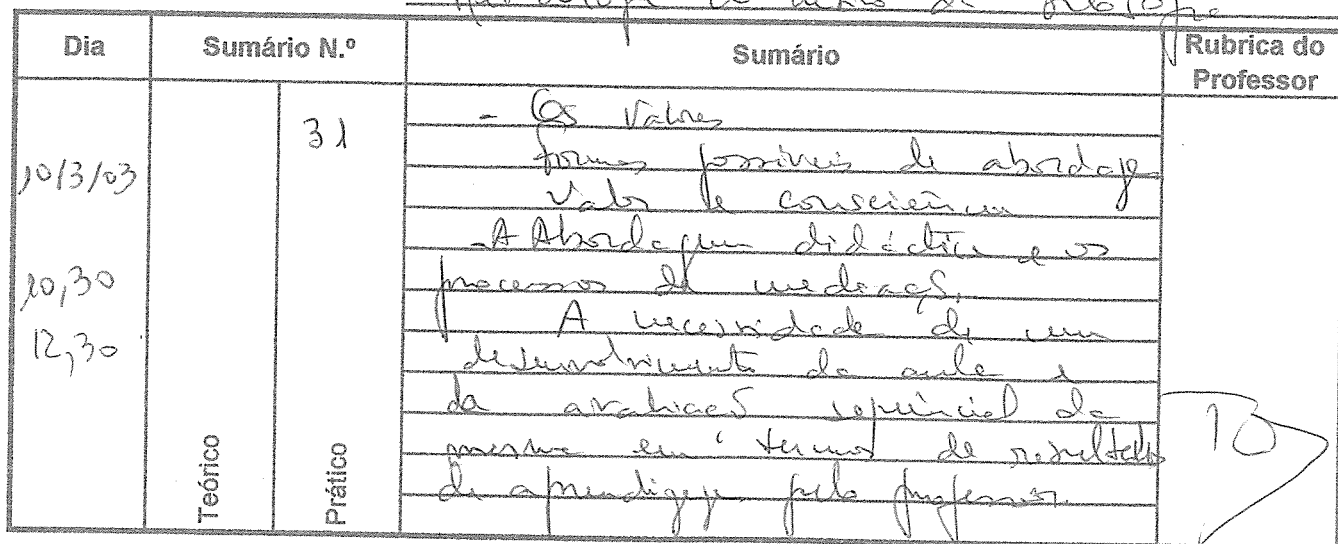 de
Dia Sumário N.º Sumário Rubrica do Professor
10/3/03
10,30
12,30
Teórico
31
Prático
- Os Valores
formas possíveis de abordage
Valor e consciência
- A Abordagem didáctica e os
processos de mediação.
A necessidade de um
desenvolvimento da aula e
da avaliação sequencial da
mesma em termos de resultados
de aprendizagem pelo professor.